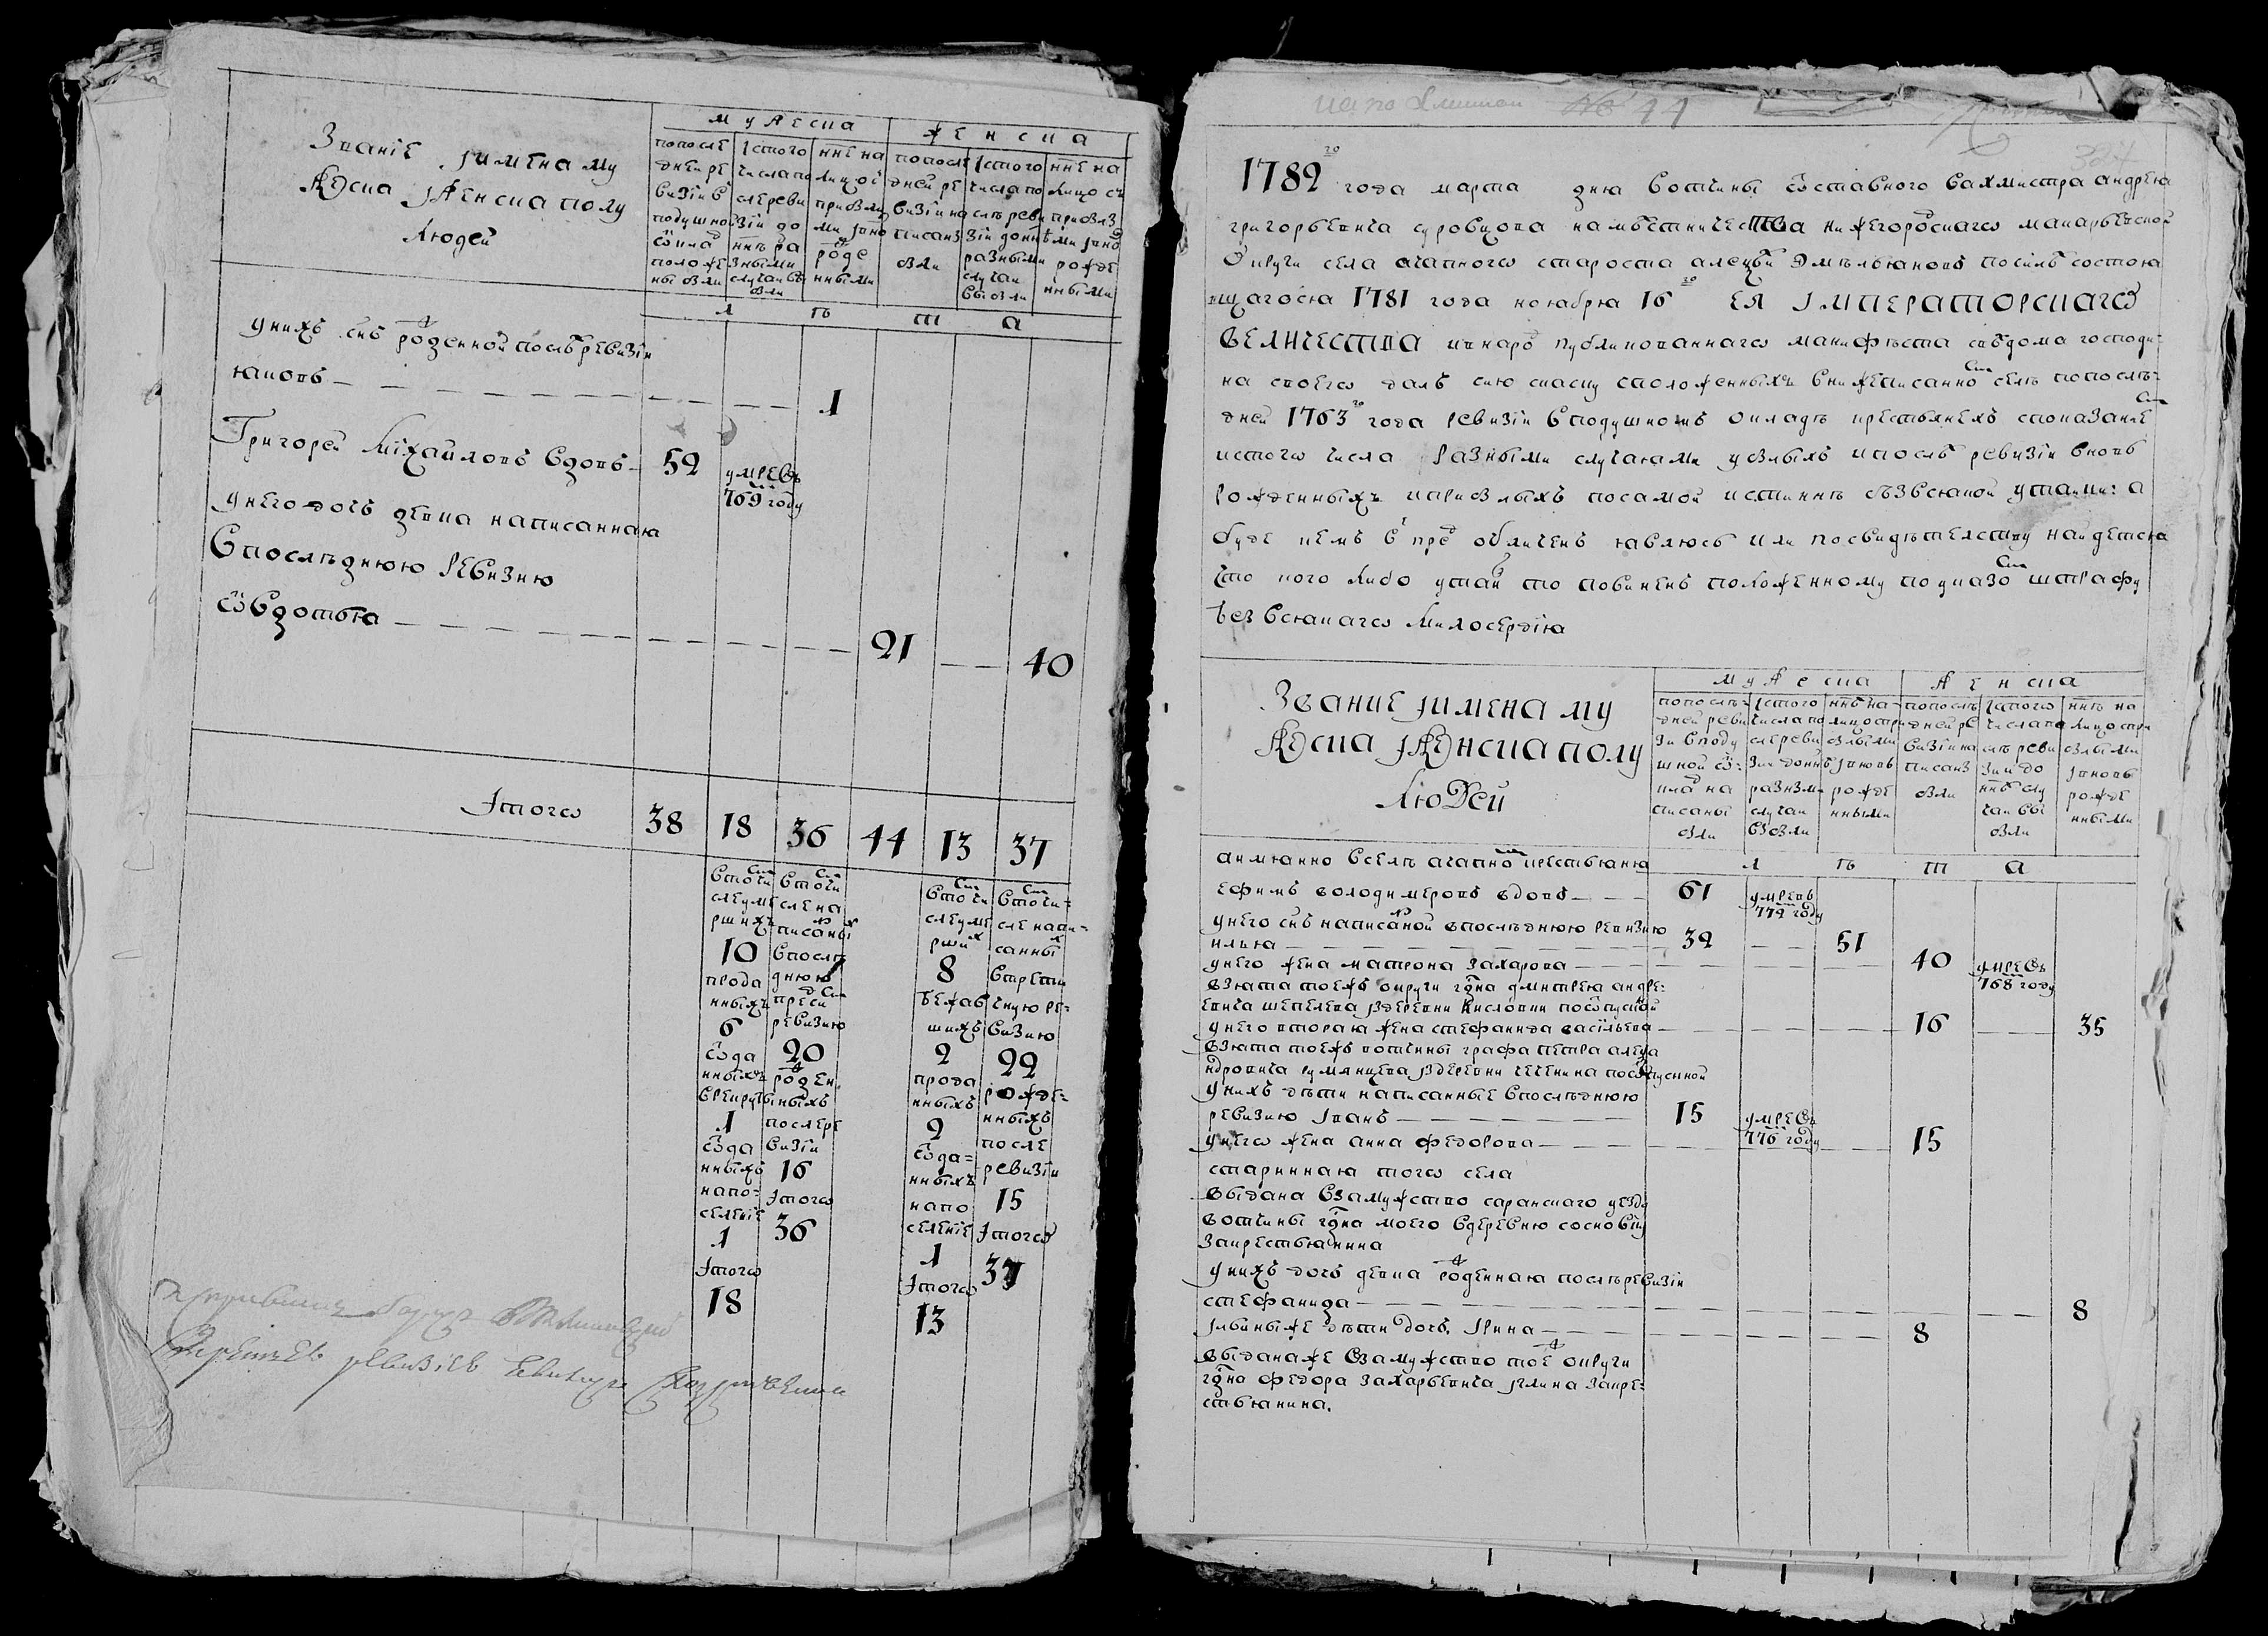 Званіе іимена му
жеска іженска полу
людей
мужеска
женска
попосле
дней ре
визіи в
подушной
ѿкла д
положе
ны были
істого
числа по
слереви
зіи до
ннѣ ра
зными
случаи вы
были
ннѣ на
лицо с
прибылы
ми іпно
рожде
нными
попосле
дней ре
визіи на
писанз
были
істого
числа по
слѣ реви
зіи донн
разными
случаи
выбыли
ннѣ на
лицо съ
прибыл
ми іпно
рожде
нными
л ѣ т а
унихъ снъ рожденной послѣ ревизіи
яковъ
1
Григорей Михайловъ вдовъ 52 умревъ
769 году
унего дочь девка написанная
впослѣднюю ревизию
овдотья 21 40
Ітого 38 18 36 44 13 37
втом чи
слеуме
ршихъ
10
прода
нныхъ
6
ѿда
нныхъ
врекруты
1
ѿда
нныхъ
напо
селение
1
Ітого
18
втом чи
сле на
писаных
впослѣ
днюю
пред сим
ревизию
20
рожден
ныхъ
послере
визіи
16
Ітого
36
втом чи
слеуме
рших
8
бежав
шихъ
2
прода
нныхъ
2
ѿда
нныхъ
напо
селение
1
Ітого
13
втом чи
сле напи
санных
втрети
чную ре
визию
22
рожде
нныхъ
после
ревизіи
15
Ітого
37
№ 44
1782 го года марта дню вотчины ѿставного вахмистра андрея
григорьевича суровцова намѣстничества нижегородскаго макарьевской
округи села ачапного староста алеѯѣй Эмельяновъ посилѣ состоя
вщагося 1781 года ноября 16 го ЕЯ ІМПЕРАТОРСКАГО
ВЕЛИЧЕСТВА ивнарод публикованнаго манифѣста свѣдома господи
на своего далъ сию скаску ѡположенныхъ внижеписанном селѣ попослѣ
дней 1763 го года ревизіи вподушномъ окладѣ крестьянехъ споказанием
истого числа разными случаями убылыхъ ипослѣ ревизіи вновь
рожденныхъ иприбылыхъ посамой истиннѣ безвсякой утайки: а
буде кемъ впред обличенъ явлюсь или посвидѣтелству найдется
что кого либо утаил то повиненъ положенному поуказом штрафу
безвсякаго милосердія
Звание іимена му
жеска іженска полу
людей
мужеска
женска
попослѣ
дней реви
зіи вподу
шной ѿ
кла д на
писаны
были
істого
числа по
слереви
зіи донн
разным
случаи
выбыли
ннѣ на
лицо при
былыми
івновь
рожде
нными
попослѣ
дней ре
визіи на
писанз
были
істого
числа по
слѣ реви
зіи до
ннѣ слу
чаи вы
были
ннѣ на
лицо при
былыми
івновь
рожде
нными
л ѣ т а
аимянно вселѣ ачапном крестьяня
ефимъ володимеровъ вдовъ 61 умревъ
772 году
унего снъ написаной впослѣднюю ревизию
илья 32 51
унего жена матрона захарова 40 умревъ
768 году
взята тоежъ округи гдна дмитрея андре
евича шепелева іздеревни кисловки поѿпускной
унего вторая жена стефанида васільева 16 35
взята тоежъ вотчины графа петра алеѯа
ндровича румянцева іздеревни чечкина поѿпускной
унихъ дѣти написанные впослѣднюю
ревизию іванъ 15 умревъ
776 году
унего жена анна федорова 15
стариннаю того села
выдана взамужство саранскаго уезду
вотчины гдна моего вдеревню сосновку
закрестьянина
унихъ дочь девка рожденная послѣревизіи
стефанида 8
ілвиныже дѣти дочь Ірина 8
выданаже взамужство тоеж округи
гдна федора захарьевича ілина закре
стьянина.